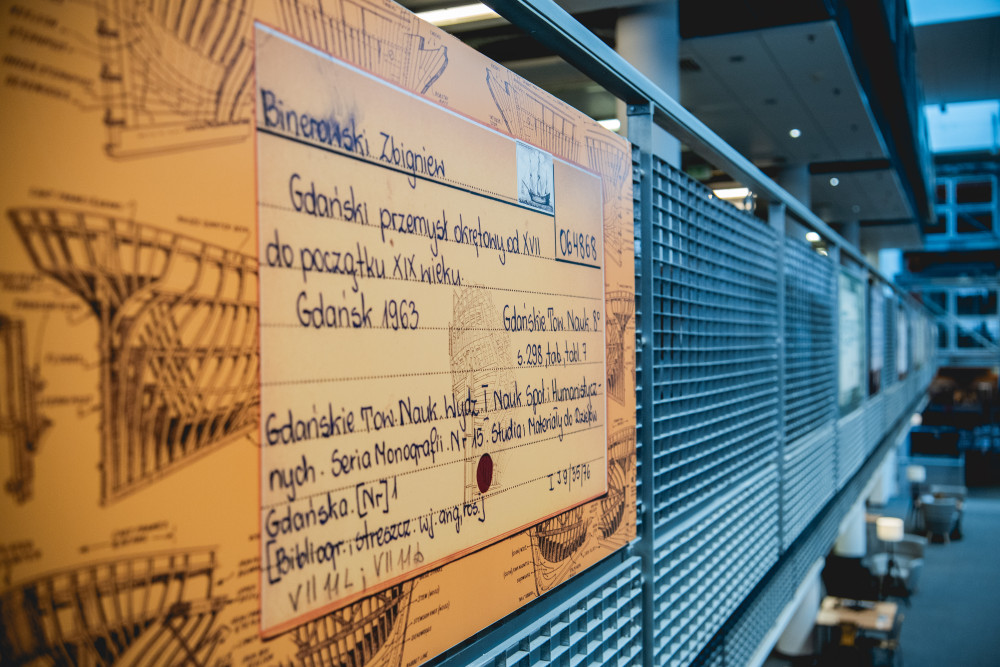 Binerowski Zbigniew
Gdański przemysł okrętowy od XVII
064868
do początku XIX wieku.
Gdańsk 1963
Gdańskie Tow. Nauk. 8°
s. 298, tab, tabl. 7
Gdańskie Tow. Nauk. Wydz I Nauk Społ. i Humanistycz-
nych. Seria Monografii. Nr 15. Studia i Materiały do Dziejów
Gdańska. [Nr] 1
I J9/35/76
[Bibliogr., streszcz. w j. ang, ros.]
VII 11 L; VII 11 b